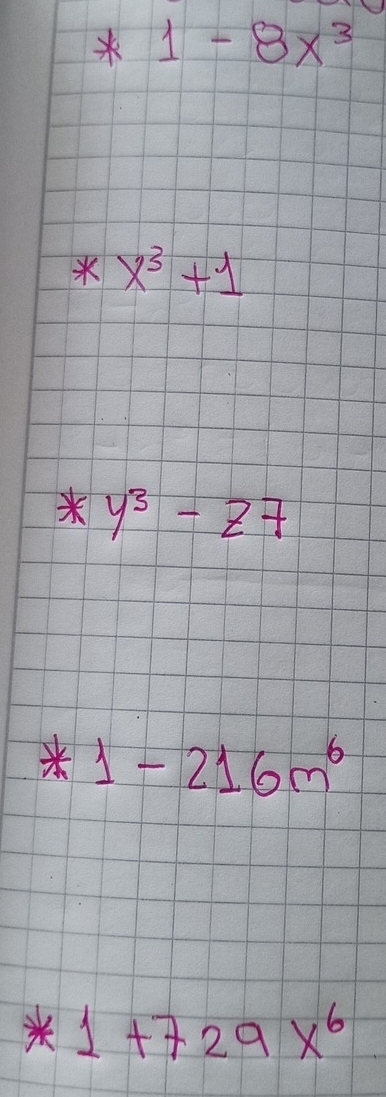 * 1 - 8x³
* x³ + 1
* y³ - 27
* 1 - 216m⁶
* 1 + 729x⁶